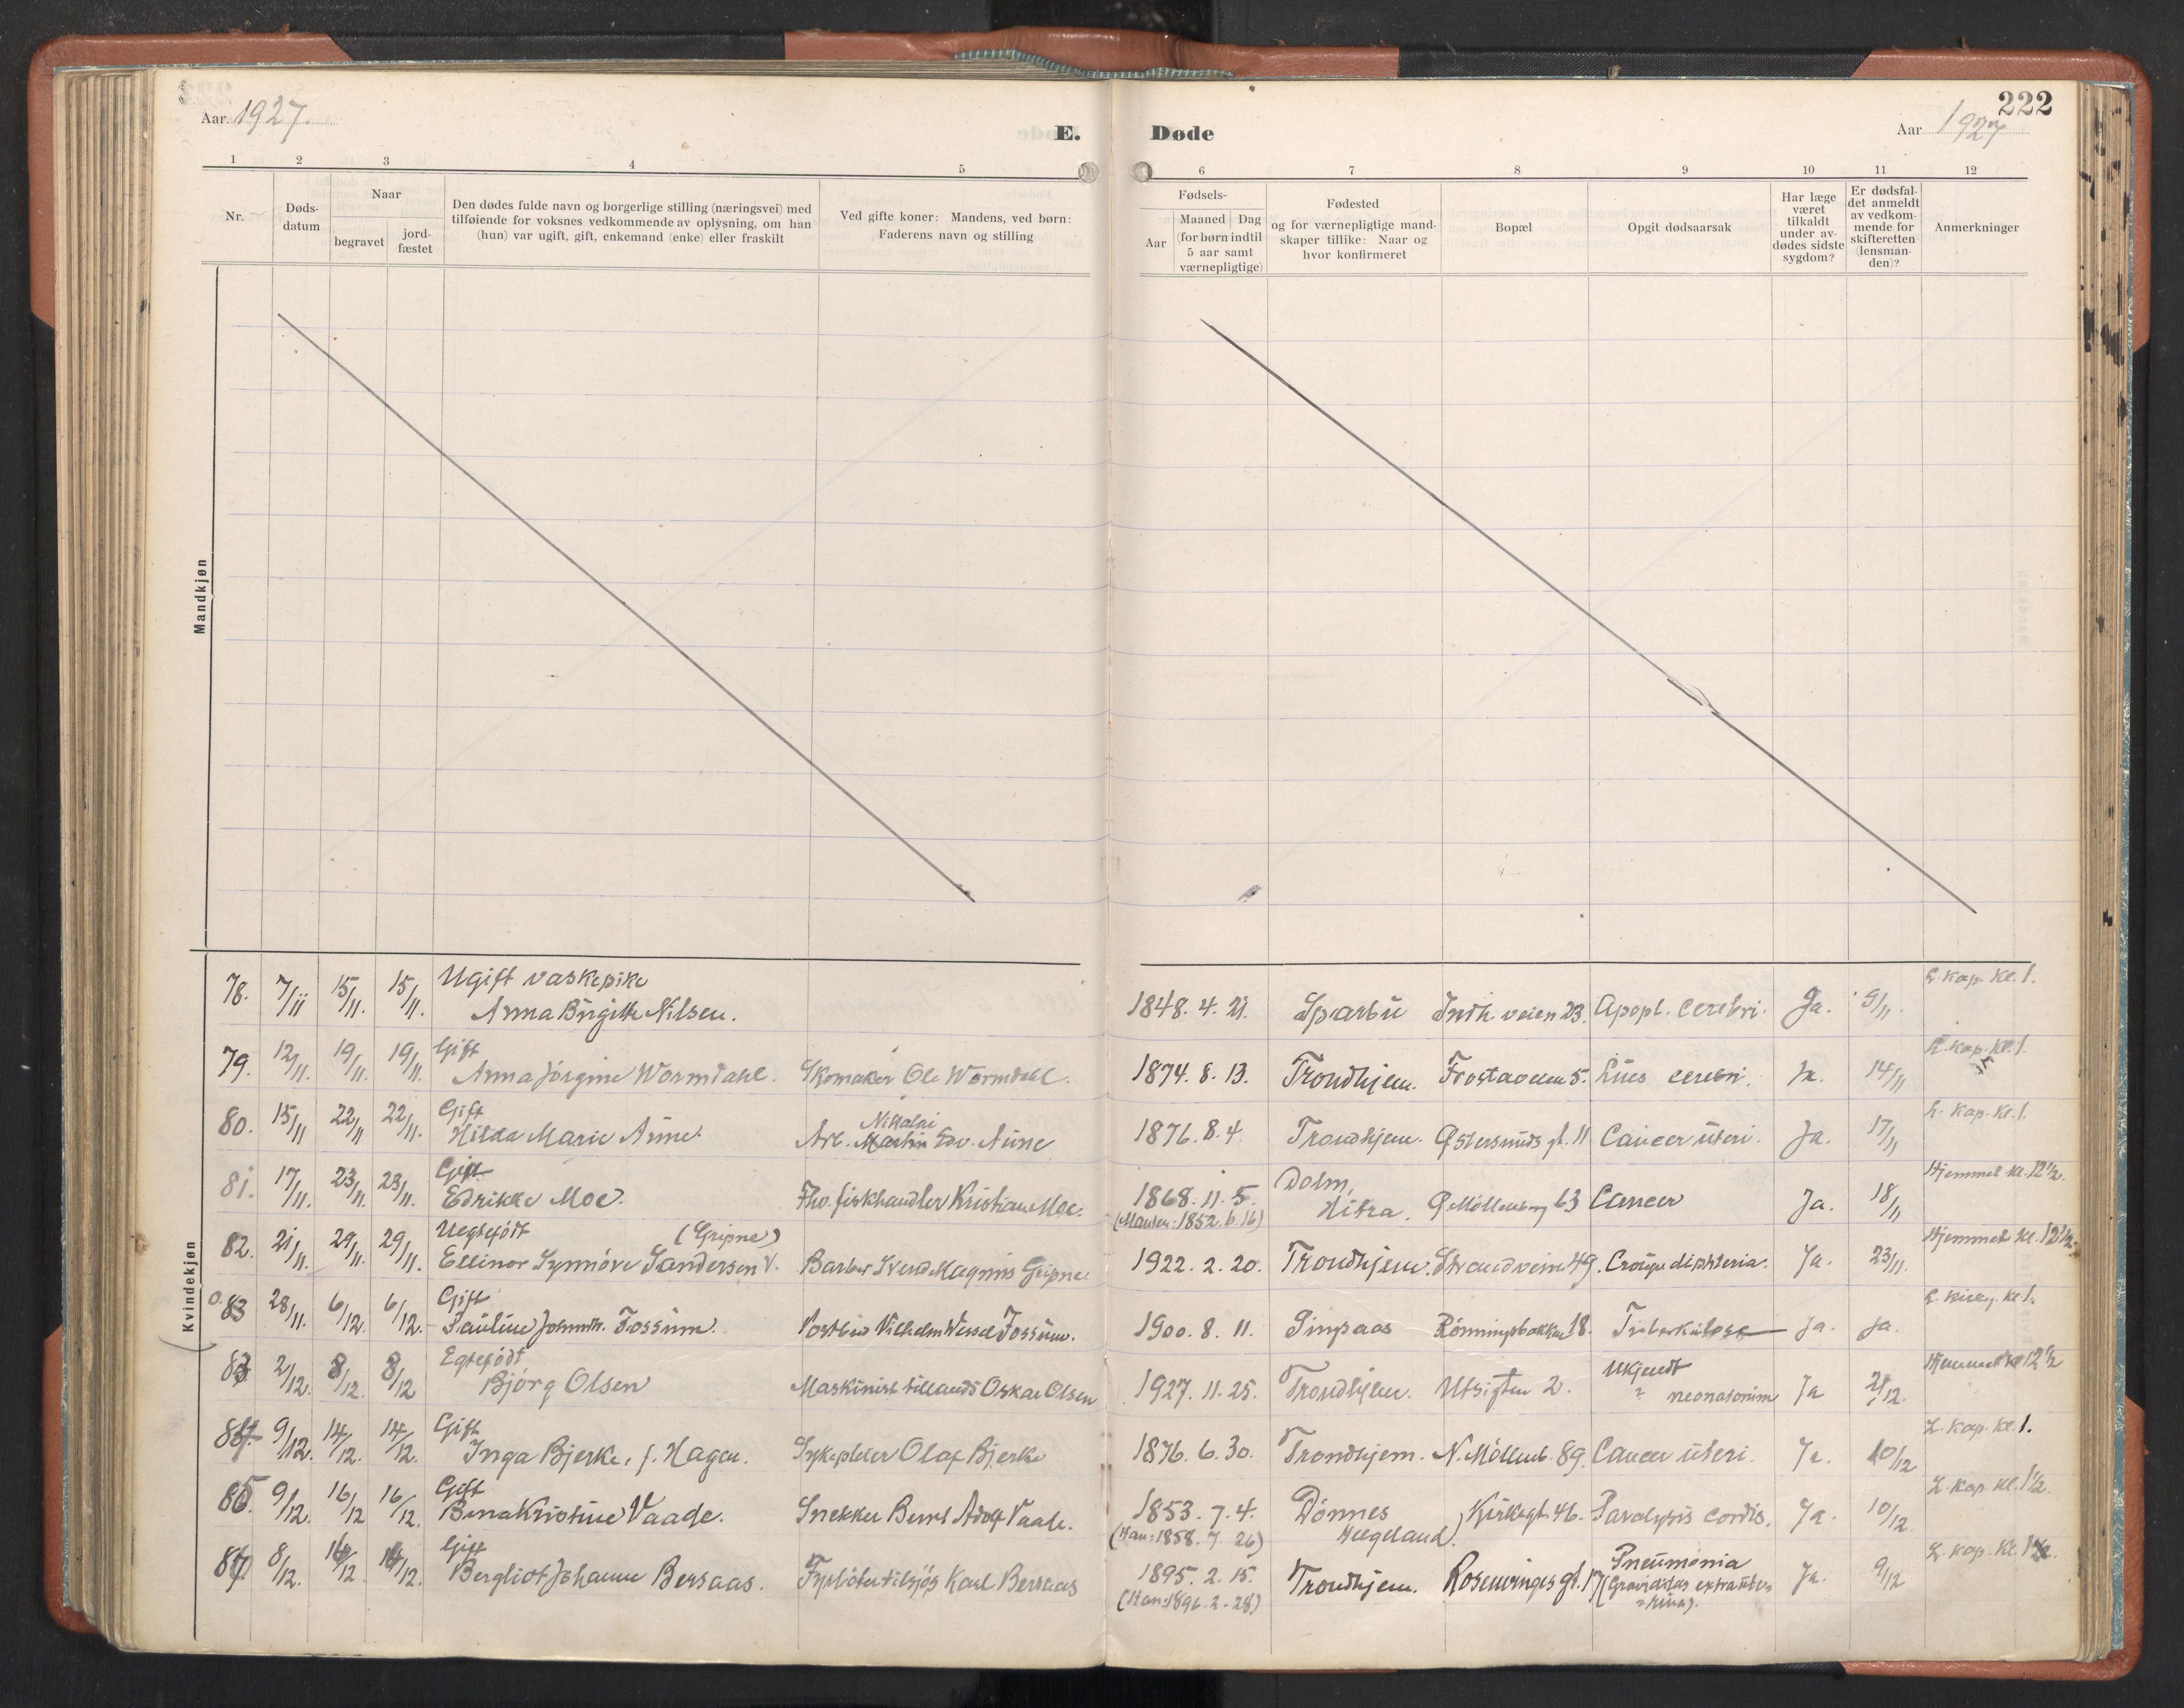 Aar 1927.
E.
Døde
222
Aar 1927
1 2 3 4 5 6 7 8 9 10 11 12
Nr.
Døds-
datum
Naar
begravet
jord-
fæstet
Den dødes fulde navn og borgerlige stilling (næringsvei) med
tilføiende for voksnes vedkommende av oplysning, om han
(hun) var ugift, gift, enkemand (enke) eller fraskilt
Ved gifte koner: Mandens, ved børn:
Faderens navn og stilling
Fødsels-
Aar
Maaned Dag
(for børn indtil
5 aar samt
værnepligtige)
Fødested
og for værnepligtige mand-
skaper tillike: Naar og
hvor konfirmeret
Bopæl
Opgit dødsaarsak
Har læge
været
tilkaldt
under av-
dødes sidste
sygdom?
Er dødsfal-
det anmeldt
av vedkom-
mende for
skifteretten
(lensman-
den)?
Anmerkninger
Mandkjøn
Kvindekjøn
Ugift vaskepike L. kap. kl. 1.
78. 7/11 15/11. 15/11. Anna Birgitte Nilsen. 1848. 4. 21. Sparbu Indh. veien 23. Apopl. cerebri. Ja. 9/11.
Gift L. kap. kl. 1.
79. 12/11. 19/11. 19/11. Anna Jörgine Wormdahl. Skomaker Ole Wormdahl. 1874. 8. 13. Trondhjem. Frostaveien 5. Lues cerebri. Ja. 14/11
Gift Nikolai L. kap. kl. 1.
80. 15/11 22/11 22/11. Hilda Marie Aune. Arb. Martin Edv. Aune 1876. 8. 4. Trondhjem. Østersunds gt. 11 Cancer uteri. Ja. 17/11
Gift Dolm, Hjemmet kl. 12½.
81. 17/11. 23/11. 23/11. Edrikke Moe. Fhv. fiskhandler Kristian Moe. 1868. 11. 5. Hitra. Ø. Möllenberg 63 Cancer Ja. 18/11
(Manden: 1852. 6. 16)
Uegtefödt (Gripne) Hjemmet kl. 12½.
82. 21/11. 29/11. 29/11. Ellinor Synnöve Sandersen Barber Sverd Magnus Gripne. 1922. 2. 20. Trondhjem. Strandveien 49. Croup diphteria. Ja. 23/11.
Gift kl. 1.
83 28/11. 6/12. 6/12. Pauline Fossum. Postbud Vilhelm Wessel Fossum. 1900. 8. 11. Singsaas Rönningsbakken 18. Tuberkulose Ja. Ja.
Egtefödt Ukjendt Hjemmet kl 12½
83 2/12. 8/12. 8/12 Björg Olsen Maskinist tillands Oskar Olsen 1927. 11. 25. Trondhjem. Utsigten 2. ? neonatorum Ja 2/12.
Gift L. kap. kl. 1.
84. 9/12. 14/12. 14/12. Inga Bjerke, f. Hagen. Sykepleier Olaf Bjerke 1876. 6. 30. Trondhjem. N. Möllenb. 89. Cancer uteri. Ja. 10/12
Gift L. kap. kl. 1½.
85. 9/12. 16/12 16/12. Bina Kristine Vaade. Snekker Bernt Adolf Vaade. 1853. 7. 4. Dönnes Kirkegt. 46. Paralysis cordis. Ja. 10/12.
(Han: 1858. 7. 26) Helgeland
Gift Pneumonia L. kap. kl.
86. 8/12. 16/12 14/12. Bergliot Johanne Bersaas. Fyrböter tilsjös Karl Bersaas 1895. 2. 15. Trondhjem. Rosenvinges gt. 17 (Graviditas extraute-
(Han: 1896. 2. 28) =rina). Ja. 9/12